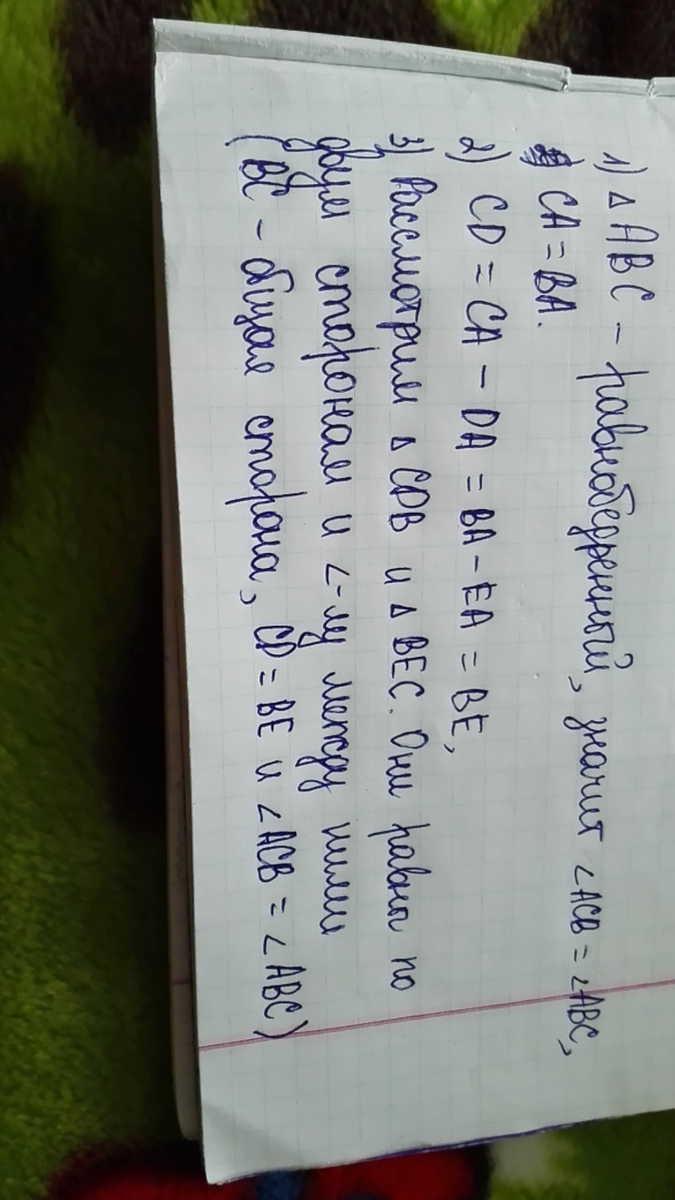 1) △ ABC - равнобедренный, значит ∠ACB = ∠ABC,
CA = BA.
2) CD = CA - DA = BA - EA = BE,
3) Рассмотрим △ CDB и △ BEC. Они равны по
двум сторонам и ∠-лу между ними
(BC - общая сторона, CD = BE и ∠ACB = ∠ABC)